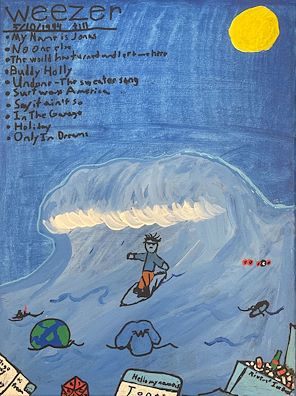 weezer
5/10/1994
• My Name is Jonas
• No One else
• The world has turned and left me here
• Buddy Holly
• Undone - The sweater song
• Surf wax America
• Say it ain't so
• In The Garage
• Holiday
• Only In Dreams
Hello my name is